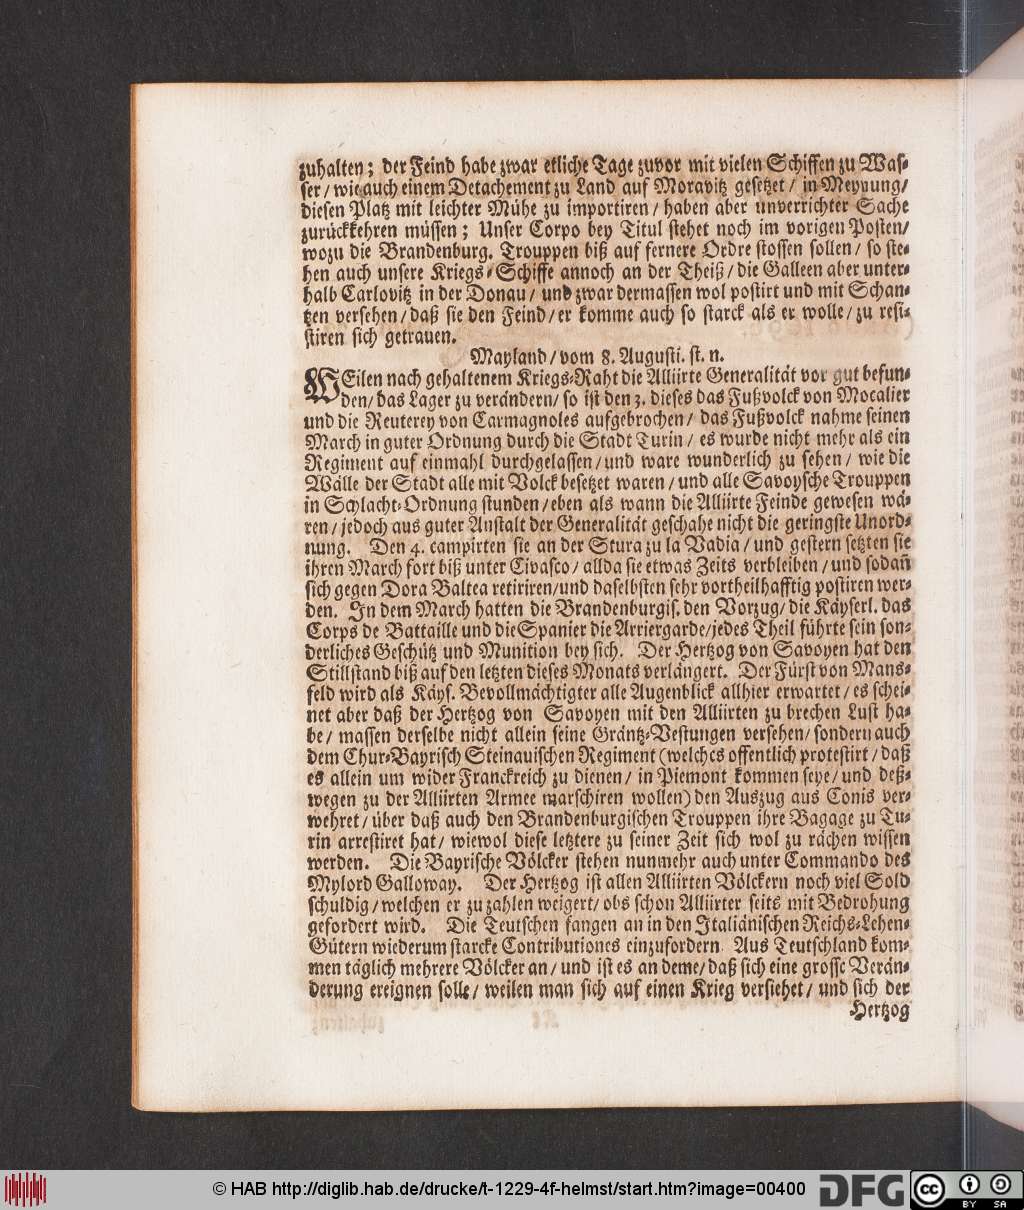 zuhalten; der Feind habe zwar etliche Tage zuvor mit vielen Schiffen zu Was-
ser / wie auch einem Detachement zu Land auf Moravitz gesetzet / in Meynung/
diesen Platz mit leichter Mühe zu importiren / haben aber unverrichter Sache
zurückkehren müssen; Unser Corpo bey Titul stehet noch im vorigen Posten/
wozu die Brandenburg. Trouppen biß auf fernere Ordre stossen sollen / so ste-
hen auch unsere Kriegs-Schiffe annoch an der Theiß / die Galleen aber unter-
halb Carlovitz in der Donau / und zwar dermassen wol postirt und mit Schan-
tzen versehen / daß sie den Feind / er komme auch so starck als er wolle / zu resi-
stiren sich getrauen.
Mayland / vom 8. Augusti. st. n.
WEilen nach gehaltenem Kriegs-Raht die Alliirte Generalität vor gut befun-
den / das Lager zu verändern / so ist den 3. dieses das Fußvolck von Mocalier
und die Reuterey von Carmagnoles aufgebrochen / das Fußvolck nahme seinen
March in guter Ordnung durch die Stadt Turin / es wurde nicht mehr als ein
Regiment auf einmahl durchgelassen / und ware wunderlich zu sehen / wie die
Wälle der Stadt alle mit Volck besetzet waren / und alle Savoysche Trouppen
in Schlacht-Ordnung stunden / eben als wann die Alliirte Feinde gewesen wä-
ren / jedoch aus guter Anstalt der Generalität geschahe nicht die geringste Unord-
nung. Den 4. campirten sie an der Stura zu la Vadia / und gestern setzten sie
ihren March fort biß unter Civasco / allda sie etwas Zeits verbleiben / und sodañ
sich gegen Dora Baltea retiriren/und daselbsten sehr vortheilhafftig postiren wer-
den. In dem March hatten die Brandenburgis. den Vorzug/ die Käyserl. das
Corps de Battaille und die Spanier die Arriergarde/jedes Theil führte sein son-
derliches Geschütz und Munition bey sich. Der Hertzog von Savoyen hat den
Stillstand biß auf den letzten dieses Monats verlängert. Der Fürst von Mans-
feld wird als Käys. Bevollmächtigter alle Augenblick allhier erwartet / es schei-
net aber daß der Hertzog von Savoyen mit den Alliirten zu brechen Lust ha-
be / massen derselbe nicht allein seine Gräntz-Vestungen versehen / sondern auch
dem Chur-Bayrisch Steinauischen Regiment (welches offentlich protestirt / daß
es allein um wider Franckreich zu dienen / in Piemont kommen seye / und deß-
wegen zu der Alliirten Armee marschiren wollen) den Auszug aus Conis ver-
wehret / über daß auch den Brandenburgischen Trouppen ihre Bagage zu Tu-
rin arrestiret hat / wiewol diese letztere zu seiner Zeit sich wol zu rächen wissen
werden. Die Bayrische Völcker stehen nunmehr auch unter Commando des
Mylord Galloway. Der Hertzog ist allen Alliirten Völckern noch viel Sold
schuldig / welchen er zu zahlen weigert / obs schon Alliirter seits mit Bedrohung
gefordert wird. Die Teutschen fangen an in den Italiänischen Reichs-Lehen-
Gütern wiederum starcke Contributiones einzufordern. Aus Teutschland kom-
men täglich mehrere Völcker an / und ist es an deme / daß sich eine grosse Verän-
derung ereignen solle / weilen man sich auf einen Krieg versiehet / und sich der
Hertzog
© HAB http://diglib.hab.de/drucke/t-1229-4f-helmst/start.htm?image=00400
DFG
cc BY SA